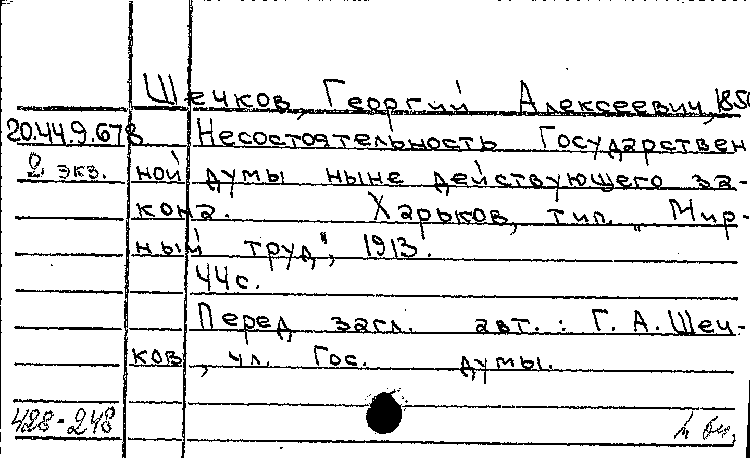 Щечков, Георгий Алексеевич, 185
20.44.9.678 Несостоятельность Государствен
2 экз. ной думы ныне действующего за-
кона. Харьков, тип. „Мир-
ный труд", 1913.
44с.
Перед загл. авт.: Г. А. Щеч-
ков, чл. Гос. думы.
428-248